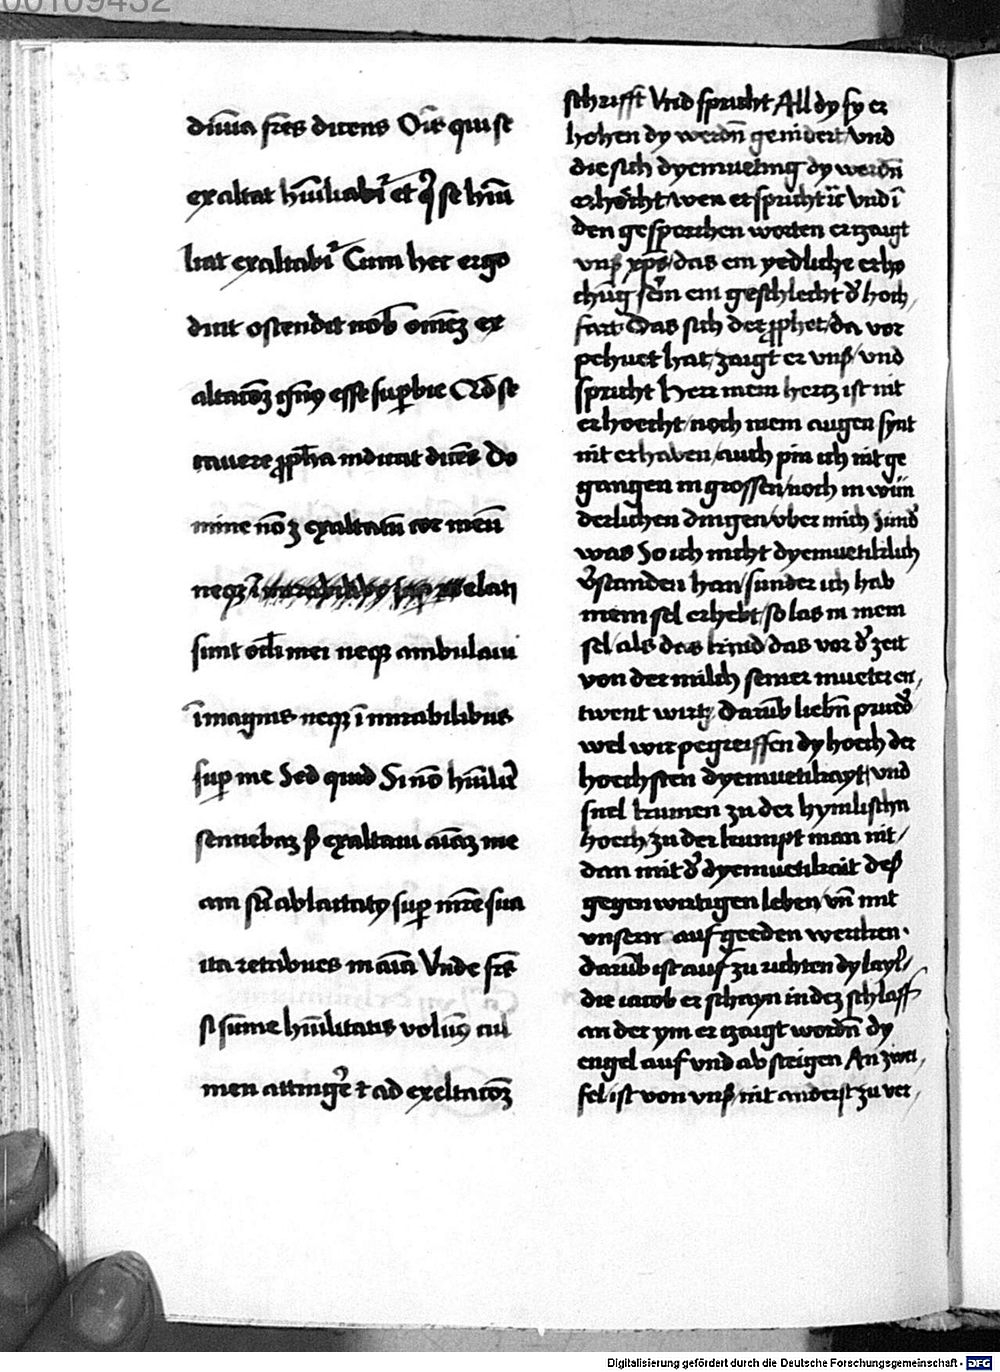 diuīa frēs dicens Oīs qui se
exaltat hūiliabit̄ et q̄ se hūi
liat exaltabit̄ Cum hec ergo
dicit ostendit nob̄ omēȝ ex
altacōȝ gen9 esse supbie Qd̄ se
cauere ꝓpha indicat dicēs Do
mine nō ȝ exaltatū cor meū
neqȝ elati
sunt ocl̄i mei neqȝ ambulaui
ī magnis neqȝ ī mirabilibus
sup me Sed quid Si nō hūilit̄
senciebaȝ ſȝ exaltaui aīaȝ me
am sic̄ ablactat9 sup mr̄e sua
ita retribues in aīa Vnde frēs
si sūme hūilitatis volum9 cul
men attinge͛ et ad exeltacōȝ
schrifft Vnd spricht All dy sy er
hohen dy werdn̄ genidert / vnd
die sich dyemueting dy werdn̄
erhöcht / wen er spricht ic̄ Vnd ī
den gesprochen worten erzaigt
vnß xp̄s / das ein yedliche erho
chūg sein ein geschlecht d͛ hoch,
fart Das sich der ꝓphet / da vor
pehuet hat / zaigt er vnß / vnd
spricht Herr mein hertz ist nit
erhoecht / noch mein augen synt
nit erhaben / auch pin ich nit ge
gangen in grossen / noch in wūn
derlichen dingen / vber mich sund͛
was So ich nicht dyemuetiklich
v͛standen han / sunder ich hab
mein sel erhebt / so las in mein
sel / als das kind das vor d͛ zeit
von der milch seiner mueter en,
twent wirt Darūb liebn̄ prued͛
wel wir pegreiffen dy hoech der
hoechsten dyemuetikayt / vnd
snel kumen zu der hymlischn
hoech zu der kumpt man nit /
dan mit d͛ dyemuetikait deß
gegenwirtigen leben / vn̄ mit
vnsern auf geeden werken.
darūb ist auf zu richten dy layt͛ /
die iacob er schayn in deȝ schlaff
an der ym er zaigt wordn̄ dy
engel auf vnd ab steigen An zwei,
fel ist von vnß / nit anderst zu ver,
Digitalisierung gefördert durch die Deutsche Forschungsgemeinschaft - DFG